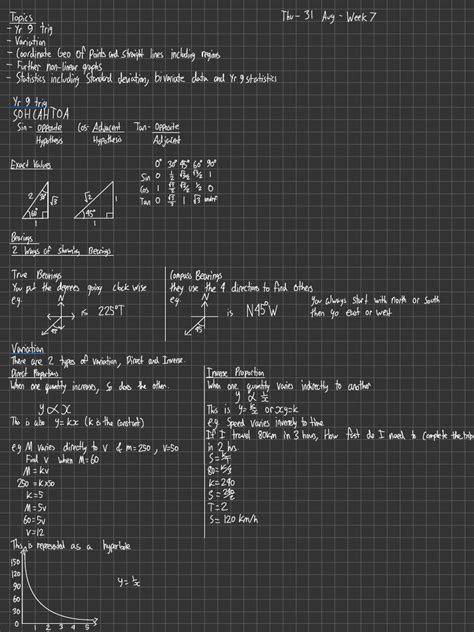 Topics
Thu - 31 Aug - Week 7
- Yr 9 trig
- Variation
- Coordinate Geo Of Points and Straight lines including regions
- Further non-linear graphs
- Statistics including Standard deviation, bivariate data and Yr 9 statistics
Yr 9 trig
SOHCAHTOA
Sin - Opposite Cos - Adjacent Tan - Opposite
Hypothesis Hypothesis Adjacent
Exact Values
0° 30° 45° 60° 90°
Sin 0 1/2
Cos 1 √3/2 1/2 0
Tan 0 1 √3 undef
2 30° √3 60° 1
√2 1 45° 1
Bearings
2 Ways of showing Bearings
True Bearings
You put the degrees going clock wise
eg.
N
is 225°T
45°
Compass Bearings
they use the 4 directions to find others
eg.
N
is N45°W
45°
You always start with north or south
then go east or west
Variation
There are 2 types of variation, Direct and Inverse.
Direct Proportions
When one quantity increases, so does the other.
y ∝ x
This is also y = kx (k is the constant)
e.g M varies directly to V & m = 250, V = 50
Find V when M = 60
M = kv
250 = k×50
K = 5
M = 5v
60 = 5v
V = 12
Inverse Proportion
When one quantity varies indirectly to another
y ∝ 1/x
This is y = k/x or xy = k
e.g. Speed varies inversely to time.
If I travel 80km in 3 hours, How fast do I need to complete the
in 2 hrs.
K = 240
T = 2
S = 120 km/h
This is represented as a
150
120
90
60
30
0
1 2 3 4 5
y = 1/x